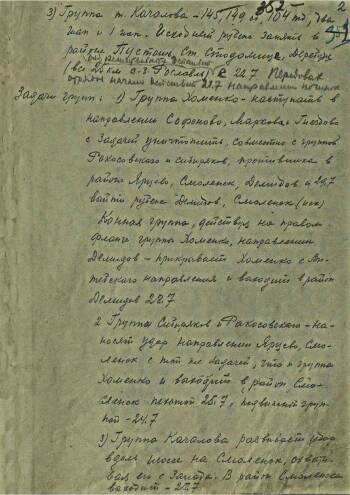 357 2
3) Группа т. Качалова – 145, 149 сд, 104 тд, два
Исходный рубеж занять в
районе Пустошь, Ст. Стодолище,
(все 25 км с-з Рославль) к 22.7 Передовые
отряды начали действия 21.7 направлении
Задачи групп: 1) Группа Хоменко – наступать в
направлении Сафоново, Гнездово
с задачей уничтожить, совместно с группой
Рокосовского и сибиряков, противника в
районе Ярцево, Смоленск, Демидов и 24.7
выйти рубеж Демидов, Смоленск (иск)
Конная группа, действуя на правом
фланге группы Хоменко, направлении
Демидов – прикрывает Хоменко с Ви-
тебского направления и выходит в район
Демидов 22.7
2 Группы Сибиряков и Рокосовского – на-
носят удар направлении Ярцево, Смо-
ленск с той же задачей, что и группа
Хоменко и выходит в район Смо-
ленск пехотой 25.7, подвижной груп-
пой – 24.7
3) Группа Качалова развивает удар
вдоль шоссе на Смоленск, охваты-
вая его с Запада. В район Смоленска
выходит – 25.7